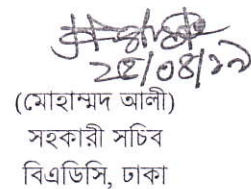 ২৫/০৪/১৯
(মোহাম্মদ আলী)
সহকারী সচিব
বিএডিসি, ঢাকা